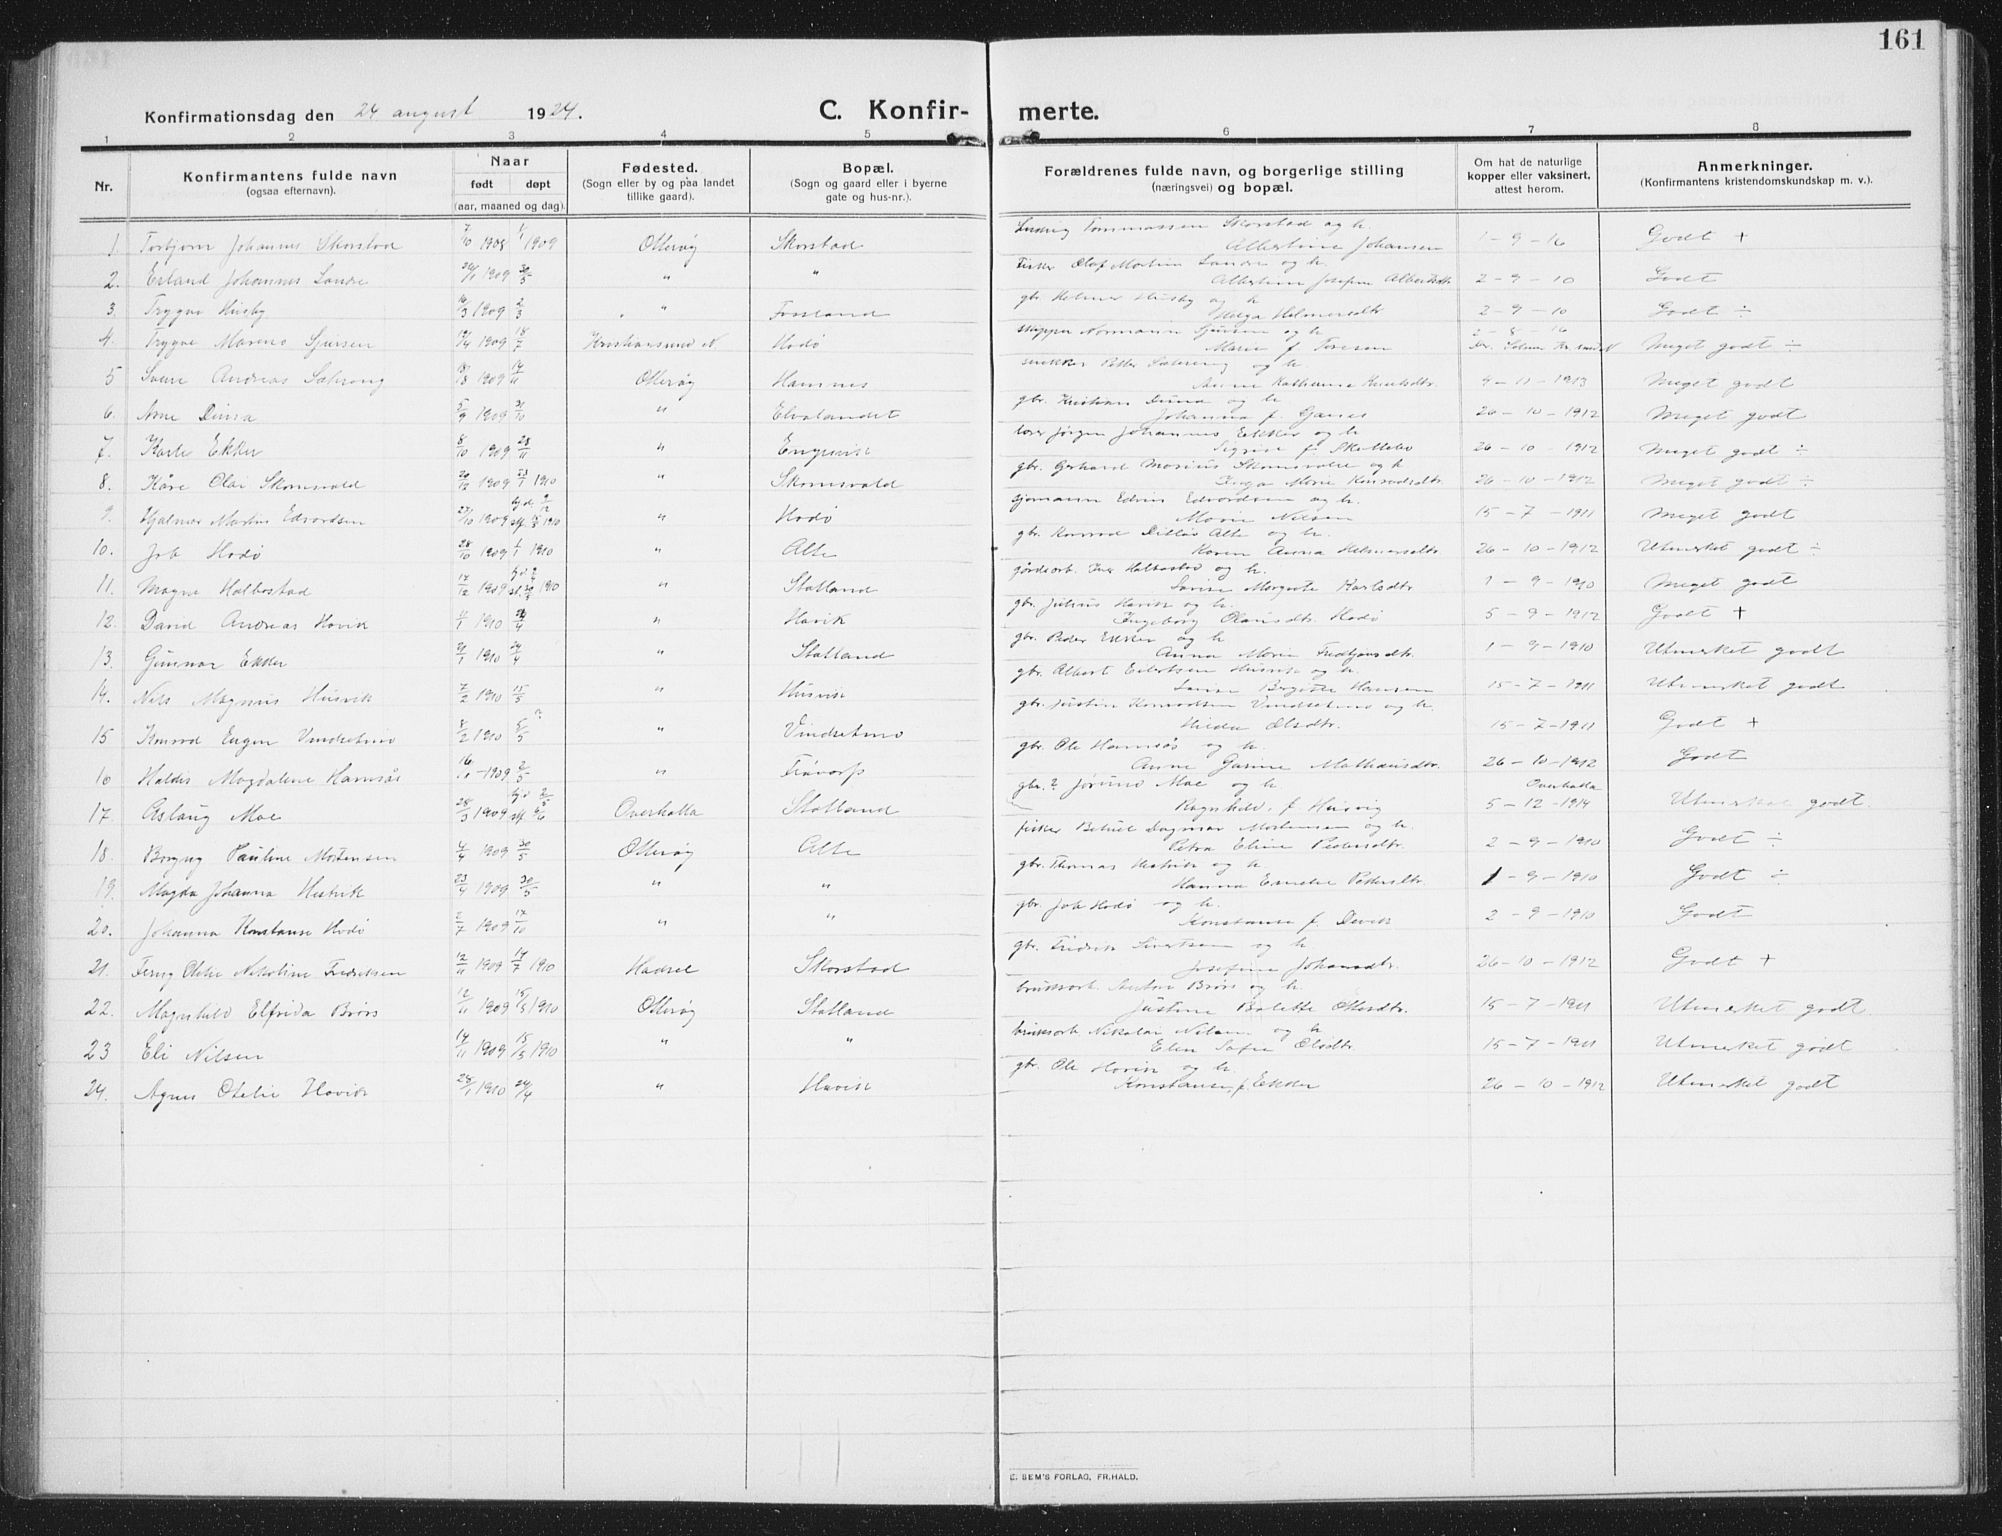 161
Konfirmationsdag den 24 august 1924.
C. Konfirmerte.
1 2 3 4 5 6 7 8
Nr.
Konfirmantens fulde navn (ogsaa efternavn).
Naar født døpt (aar, maaned og dag).
Fødested. (Sogn eller by og paa landet tillike gaard).
Bopæl. (Sogn og gaard eller i byerne gate og hus-nr.).
Forældrenes fulde navn, og borgerlige stilling (næringsvei) og bopæl.
Om hat de naturlige kopper eller vaksinert, attest herom.
Anmerkninger. (Konfirmantens kristendomskundskap m. v.).
1. Torbjørn Johannes Skorstad 7/10 1908 1/1 1909 Otterøy Skorstad Tommassen Skorstad og h. Albertine Johansen 1-9-16 Godt +
2. Erland Johannes Sandre 1909 30/5 " " Fisker Olaf Martin Sandre og h. Albertine Josefine 2-9-10 Godt
3. Trygve Husby 16/3 1909 2/3 " Fosland gbr. Helmer Husby og h. Helga Helmersdtr. 2-9-10 Godt ÷
4. Trygve Mareno Sjursen 19/4 1909 18/7 Kristiansund N. Hodø skipper Normann Sjursen og h. Marie f. Toresen 2-8-16 Meget godt ÷
5 Andreas 1909 14/11 Otterøy Hamnes snekker Petter og h. Katharina 4-11-1913 Meget godt
6. Arne Duna 5/9 1909 31/10 " Elvalandet gbr. Kristian Duna og h. Johanna f. 26-10-1912 Meget godt
7. Karle Ekker 8/10 1909 28/11 " Engvik Jørgen Johannes Ekker og h. Sigrid f. 26-10-1912 Meget godt ÷
8. Kåre Olai Skomsvold 20/12 1909 23/1 1910 " Skomsvold gbr. Gerhard Marius Skomsvold og h. Inga Marie Konradsdtr. 26-10-1912 Meget godt ÷
9. Hjalmar Martin Edvardsen 27/10 1909 1910 " Hodø sjømann Edvin Edvardsen og h. Marie Nilsen 15-7-1911 Meget godt
10. Job Hodø 28/10 1909 1/1 1910 " Alte gbr. Konrad Ditlev Alte og h. Karen Anna Helmersdtr. 26-10-1912 Utmerket godt ÷
11. Magne Halbostad 17/12 1909 1910 " Statland Halbostad og h. Lovise Margrete Karlsdtr. 1-9-1910 Meget godt
12. David Andreas Havik 11/1 1910 " Havik gbr. Julius Havik og h. Ingeborg Hodø 5-9-1912 Godt +
13. Gunnar Ekker 21/1 1910 24/4 " Statland gbr. Peder Ekker og h. Anna Marie 1-9-1910 Utmerket godt
14. Nils Magnus Husvik 7/2 1910 15/5 " Husvik gbr. Albert Evertsen Husvik og h. Lovise Birgitte Hansen 15-7-1911 Utmerket godt
15 Konrad Eugen Vindsetmo 8/2 1910 5/5 ? " Vindsetmo gbr. Justin Konradsen Vindsetmo og h. Hilda Olsdtr. 15-7-1911 Godt +
16 Haldis Magdalene Hamsås 1909 2/5 " gbr. Ole Hamsås og h. Anne Gurine Mathæusdtr. 26-10-1912 Godt
17. Aslaug Moe 28/3 1909 Overhalla Statland gbr.? Jørund Moe og h. Ragnhild, f. Husvig Overhalla 5-12-1914 Utmerket godt.
18. Borgny Pauline Mortensen 4/4 1909 30/5 Otterøy Alte fisker Betuel Dagmar Mortensen og h. Petra Eline Pedersdtr. 2-9-1910 Godt ÷
19. Magda Johanna Hestvik 23/4 1909 30/5 " " gbr. Thomas Hestvik og h. Hanna Emelie Pedersdtr. 1-9-1910 Godt ÷
20. Johanna Konstanse Hodø 2/7 1909 17/10 " " gbr. Job Hodø og h. Konstanse f. Devik 2-9-1910 Godt
21. Nikoline Fredriksen 12/11 1909 17/7 1910 Hadsel Skorstad gbr. Fredrik Sivertsen og h. Josefine Johansdtr. 26-10-1912 Godt +
22. Magnhild Elfrida Brørs 12/11 1909 15/5 1910 Otterøy Statland bruksarb. Anton Brørs og h. Justine Bolette 15-7-1911 Utmerket godt
23 Eli Nilsen 14/11 1909 15/5 1910 " " bruksarb. Nikolai Nilsen og h. Elen Sofie Olsdtr. 15-7-1911 Utmerket godt
24. Agnes Otelie Havik 28/1 1910 24/4 " Havik gbr. Ole Havik og h. Konstanse, f. Ekker 26-10-1912 Utmerket godt
E. SEM'S FORLAG, FR.HALD.